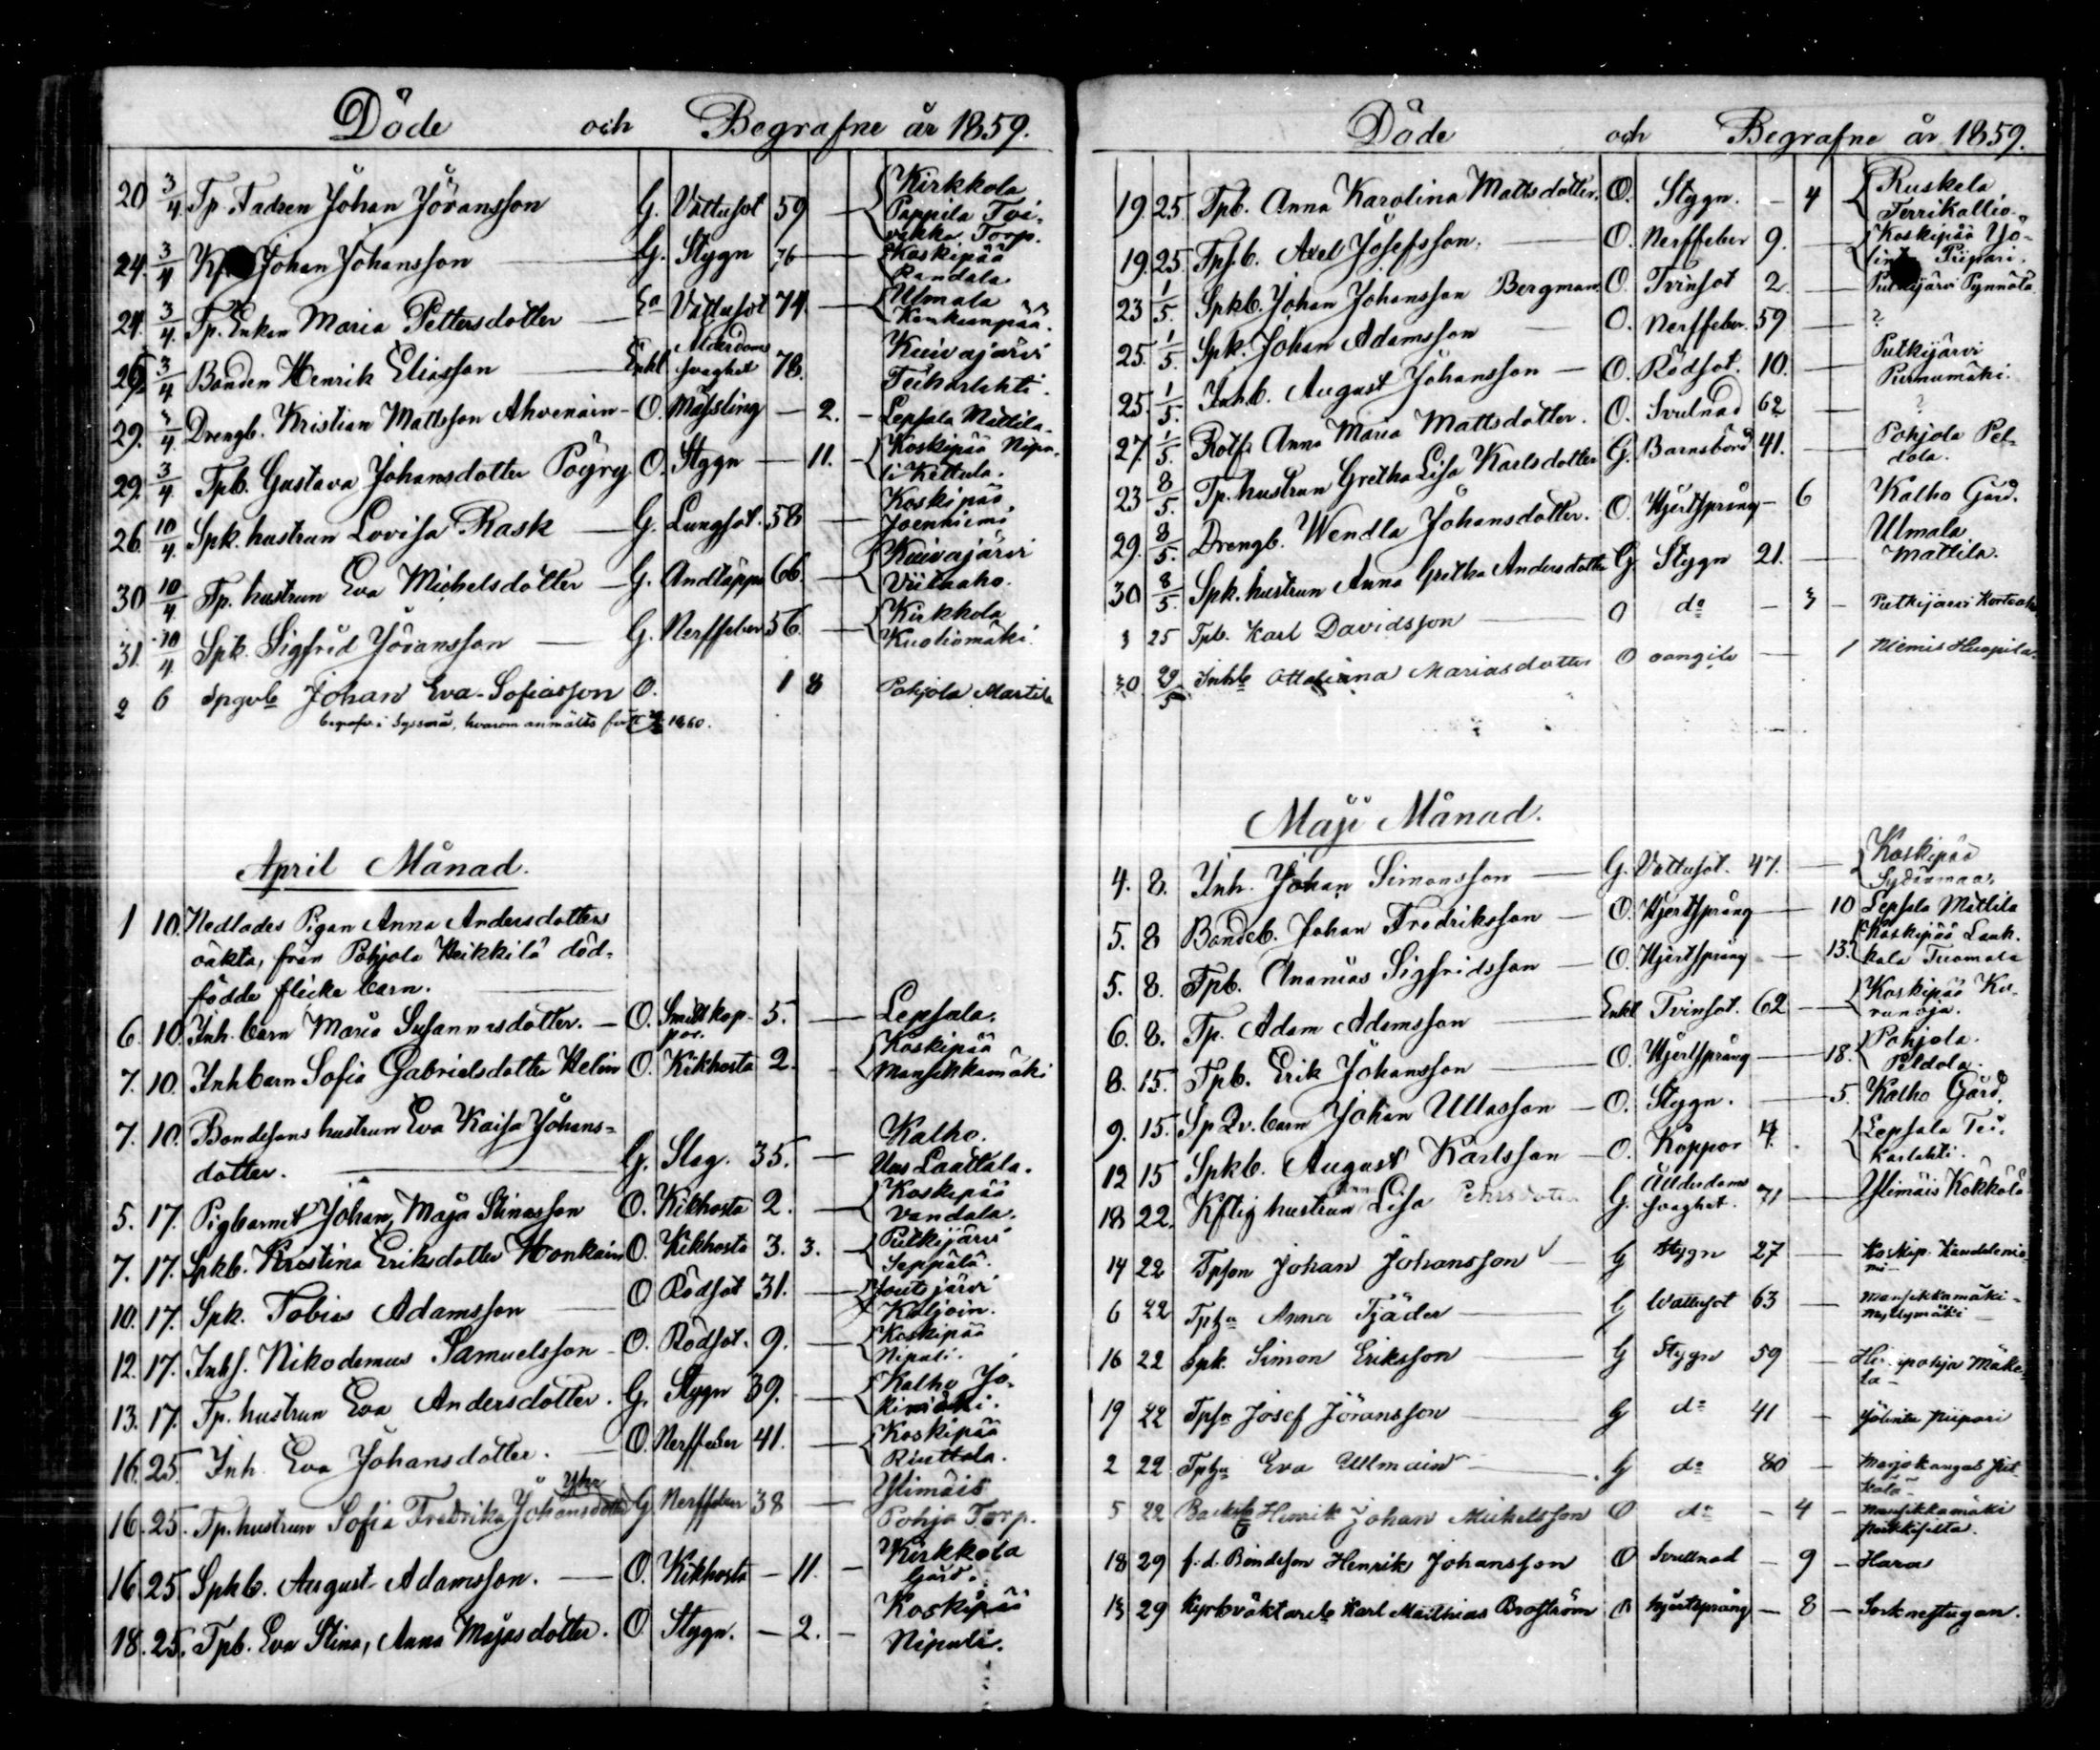 Döde och Begrafne år 1859.
20 3/4 Tp. Fadren Johan Jöransson G. Vattusot 59 — Kirkkola
Pappila Toi-
vikka Torp.
24. 3/4 Johan Johansson G. Stygn 76 — Koskipää
Pandala
24. 3/4 Tp. Enkan Maria Pettersdotter — Ea Vattusot 74 — Ulmala
Kankaanpää.
26. 3/4 Bonden Henrik Eliasson — Enkl Ålderdoms
svaghet 78. Kuivajärvi
Teiharlahti.
29. 3/4 Drengb. Kristian Mattsson Ahvenain - O. Mässling — 2. - Lepsala Mattila.
29. 3/4 Tpb. Gustava Johansdotter Pöyry O. Stygn — 11. - Koskipää Nipu-
li Kettula.
26. 10/4 Spk. hustrun Lovisa Rask — G. Lungsot. 58 — Koskipää
Joenniemi
30 10/4 Tp. hustrun Eva Michelsdotter — G. Andtäppa 66. — Kuivajärvi
Viitaaho.
31. 10/4 Spk. Sigfrid Jöransson — G. Nerffeber 56. — Kirkkola
Kuoliomäki.
2 6 Spgvb Johan Eva-Sofiasson O. 1 8 Pohjola Martila
begrafv. i Sysmä, hvarom anmälts 1860.
April Månad.
1 10. Nedlades Pigan Anna Andersdotters
oäkta, från Pohjola Heikkilä död-
födde flicke barn.
6. 10. Inh. barn Maria Susannasdotter. — O. Småttkop-
por. 5. — Lepsala.
7. 10. Inhbarn Sofia Gabrielsdotter Helin O. Kikhosta 2. - Koskipää
Mansikkamäki
7. 10. Bondesons hustrun Eva Kaisa Johans-
dotter. — G. Slag. 35. — Kalho.
Uus Laattala.
5. 17. Pigbarnet Johan, Maja Stinasson O. Kikhosta 2. — Koskipää
Vandala.
7. 17. Spkb. Kristina Eriksdotter Honkain O. Kikhosta 3. 3. - Putkijärvi
Seppälä.
10. 17. Spk. Tobias Adamsson — O Rödsot 31. — Joutsjärvi
Kaljoin.
12. 17. Inhs. Nikodemus Samuelsson - O. Rödsot. 9. — Koskipää
Nipuli.
13. 17. Tp. hustrun Eva Andersdotter. G. Stygn 39. — Kalho Jo-
kimäki.
16. 25. Inh. Eva Johansdotter. — O. Nerffeber 41. — Koskipää
Riuttala.
16. 25. Tp. hustrun Sofia Fredrika Johansdotter G. Nerffeber 38 — Ylimäis
Pohja Torp.
16. 25 Spkb. August Adamsson. — O. Kikhosta — 11. - Kirkkola
Gård.
18. 25. Tpb. Eva Stina, Anna Majasdotter. O. Stygn. — 2. - Koskipää
Nipuli.
Döde och Begrafne år 1859.
19. 25. Tpb. Anna Karolina Mattsdotter. O. Stygn. — 4 Ruskela
Terrikallio.
19. 25. Tpsb. Axel Josefsson. — O. Nerffeber 9. — Koskipää Yö-
Piipari.
23 1/5. Spkb. Johan Johansson Bergman. O. Tvinsot 2. — Putkijärvi Pynnölä
25. 1/5. Spk. Johan Adamsson — O. Nerffeber. 59 — ?
25. 1/5. Inhb. August Johansson — O. Rödsot. 10. — Putkijärvi
Purnumäki.
27. 1/5. Rotf. Anna Maria Mattsdotter. O. Svulnad 62 — ?
23 8/5. Tp. hustrun Gretha Lisa Karlsdotter G. Barnsbörd 41. — Pohjola Pel-
dola.
29. 8/5. Drengb. Wendla Johansdotter. O. Hjertsprång — 6 Kalho Gård.
30 8/5. Spk. hustrun Anna Gretha Andersdotter G. Stygn 21. — Ulmala
Mattila.
3 25 Tpb. Karl Davidsson — O do — 3 - Putkijärvi
30 29/5 Inhb Ottiliana Mariasdotter O oangifv — 1 Niemis Haapila.
Maji Månad.
4. 8. Inh. Johan Simonsson — G. Vattusot. 47. — Koskipää
Sydänmaa.
5. 8 Bondeb. Johan Fredriksson — O. Hjertsprång — 10 Lepsala Mattila
5. 8. Tpb. Ananias Sigfridsson — O. Hjertsprång — 13. Koskipää Lauk-
kala Tuomala
6. 8. Tp. Adam Adamsson — Enkl Tvinsot. 62 — Koskipää Ko-
ranoja.
8. 15. Tpb. Erik Johansson — O. Hjertsprång — 18. Pohjola.
Peldola.
9. 15. Sp Qv. barn Johan Ullasson — O. Stygn. — 5. Kalho Gård.
12 15 Spkb. August Karlsson — O. Koppor 4. Lepsala Tei-
karlahti.
18 22. Kftig hustrun Lisa Pehrsdotter G. Ålderdoms
svaghet. 71 — Ylimäis Kokkola
14 22 Tpson Johan Johansson — G Stygn 27 — Koskip.
6 22 Tpha Anna Tjäder — G Wattusot 63 — Mansikkamäki
Myllymäki
16 22 Spk. Simon Eriksson — G Stygn 59 — Mäke-
lä
19 22 Tpsn Josef Jöransson — G do 41 - Piipari
2 22 Tpha Eva Ullmain — G do 80 — Marjokangas
5 22 Henrik Johan Mickelsson O do — 4 - Mansikkamäki
18 29 f.d. Bondeson Henrik Johansson O Svullnad — 9 - Hara
13 29 Kyrkväktareb Karl Matthias Broström O hjertsprång — 8 - Sockenstugan.